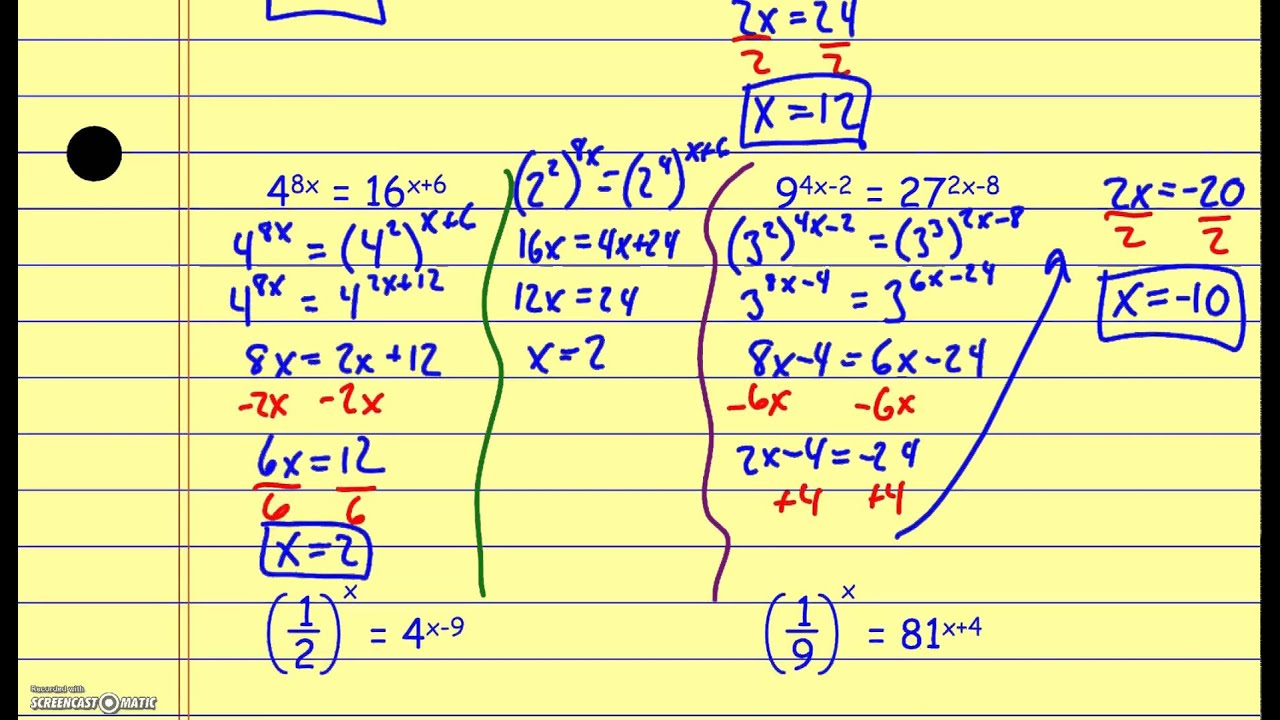 2x = 24
2 2
x = 12
4^{8x} = 16^{x+6}
4^{8x} = (4^2)^{x+6}
4^{8x} = 4^{2x+12}
8x = 2x + 12
-2x -2x
6x = 12
6 6
x = 2
(2^2)^{8x} = (2^4)^{x+6}
16x = 4x+24
12x = 24
x = 2
9^{4x-2} = 27^{2x-8}
(3^2)^{4x-2} = (3^3)^{2x-8}
3^{8x-4} = 3^{6x-24}
8x-4 = 6x-24
-6x -6x
2x-4 = -24
+4 +4
2x = -20
2 2
x = -10
(1/2)^x = 4^{x-9}
(1/9)^x = 81^{x+4}
Recorded with
SCREENCAST-O-MATIC